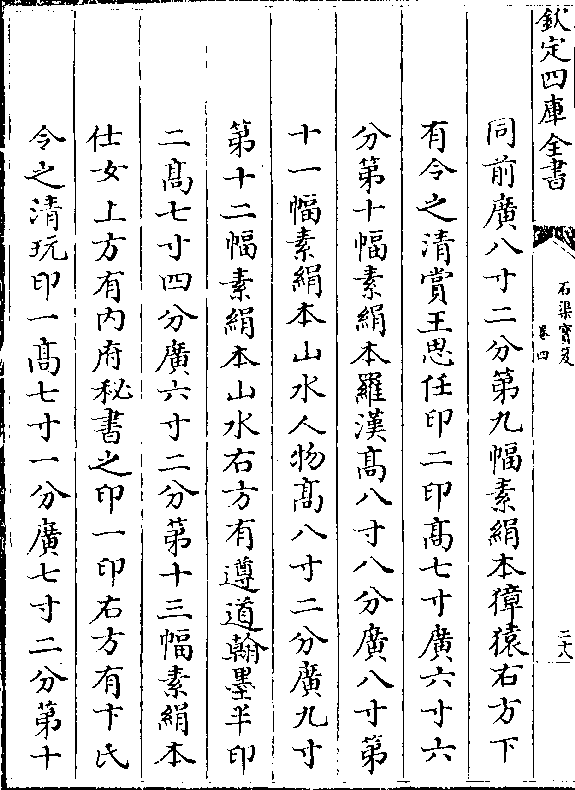 欽定四庫全書
石渠寳笈
卷四
二八
同前廣八寸二分第九幅素絹本獐猿右方下
有令之清賞王思任印二印髙七寸廣六寸六
分第十幅素絹本羅漢髙八寸八分廣八寸第
十一幅素絹本山水人物髙八寸二分廣九寸
第十二幅素絹本山水右方有遵道翰墨半印
二髙七寸四分廣六寸二分第十三幅素絹本
仕女上方有内府秘書之印一印右方有卞氏
令之清玩印一髙七寸一分廣七寸二分第十